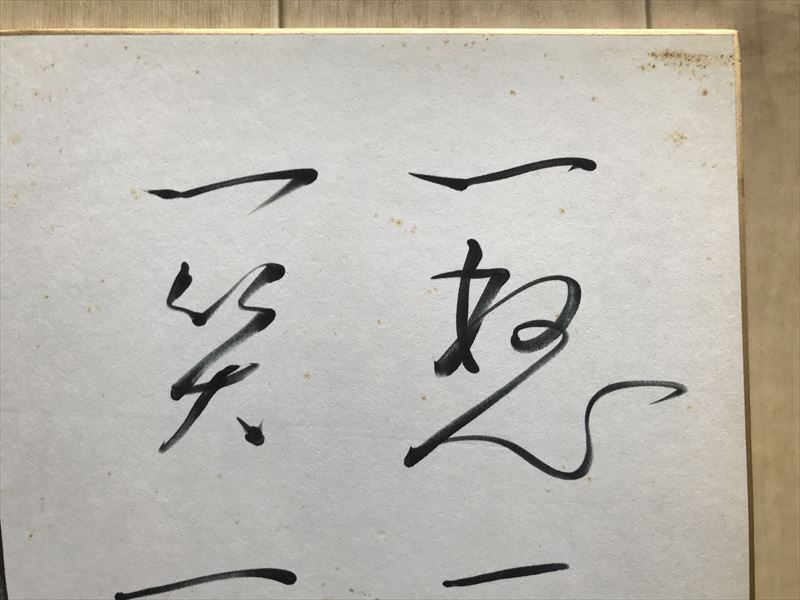 一怒一
一笑一